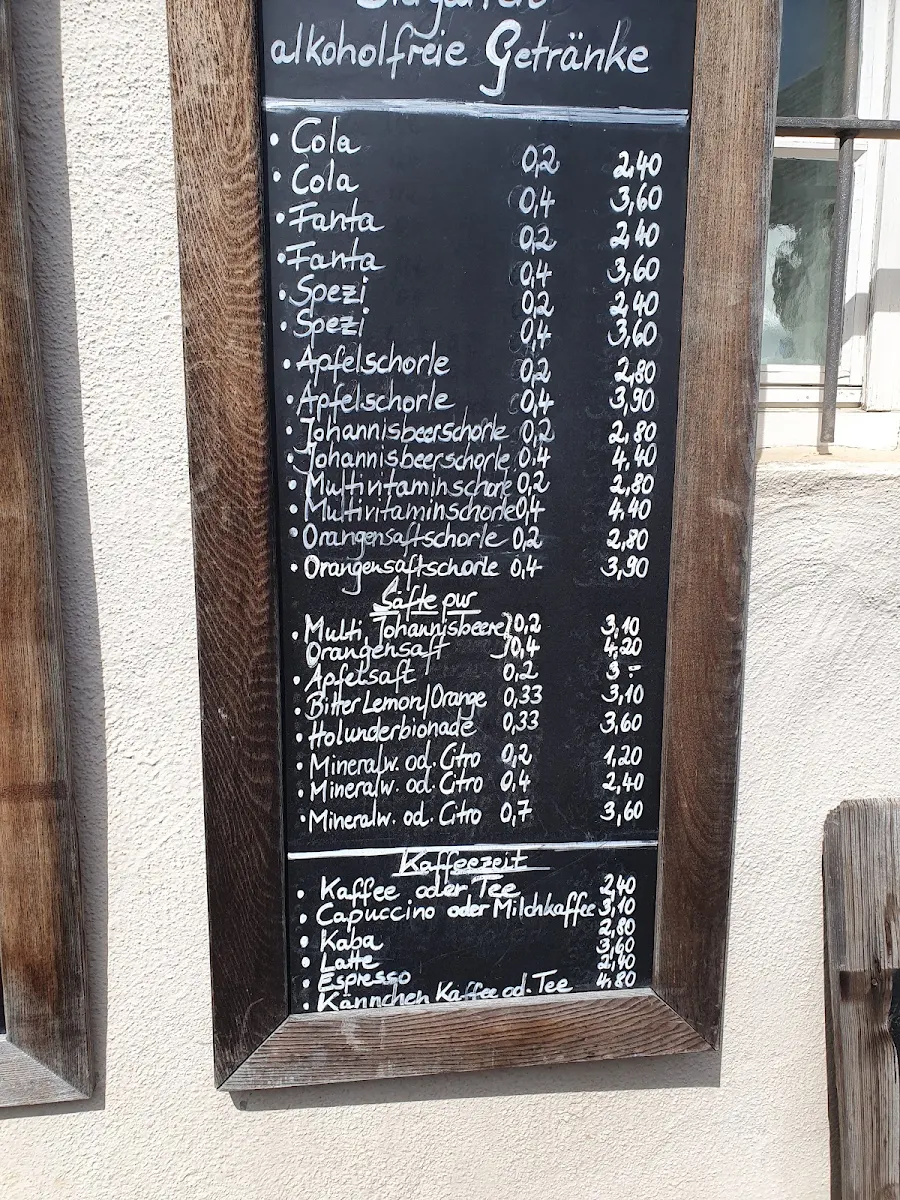 alkoholfreie Getränke
• Cola 0,2 2,40
• Cola 0,4 3,60
• Fanta 0,2 2,40
• Fanta 0,4 3,60
• Spezi 0,2 2,40
• Spezi 0,4 3,60
• Apfelschorle 0,2 2,80
• Apfelschorle 0,4 3,90
• Johannisbeerschorle 0,2 2,80
• Johannisbeerschorle 0.4 4,40
• Multivitaminschorle 0,2 2,80
• Multivitaminschorle 0,4 4,40
• Orangensaftschorle 0,2 2,80
• Orangensaftschorle 0,4 3,90
Säfte pur
• Multi, Johannisbeere } 0,2 3,10
Orangensaft } 0,4 4,20
• Apfelsaft 0,2 3,-
• Bitter Lemon/Orange 0,33 3,10
• Holunderbionade 0,33 3,60
• Mineralw. od. Citro 0,2 1,20
• Mineralw. od. Citro 0,4 2,40
• Mineralw. od. Citro 0,7 3,60
Kaffeezeit
• Kaffee oder Tee 2,40
• Capuccino oder Milchkaffee 3,10
• Kaba 2,80
• Latte 3,60
• Espresso 2,40
• Kännchen Kaffee od. Tee 4,80